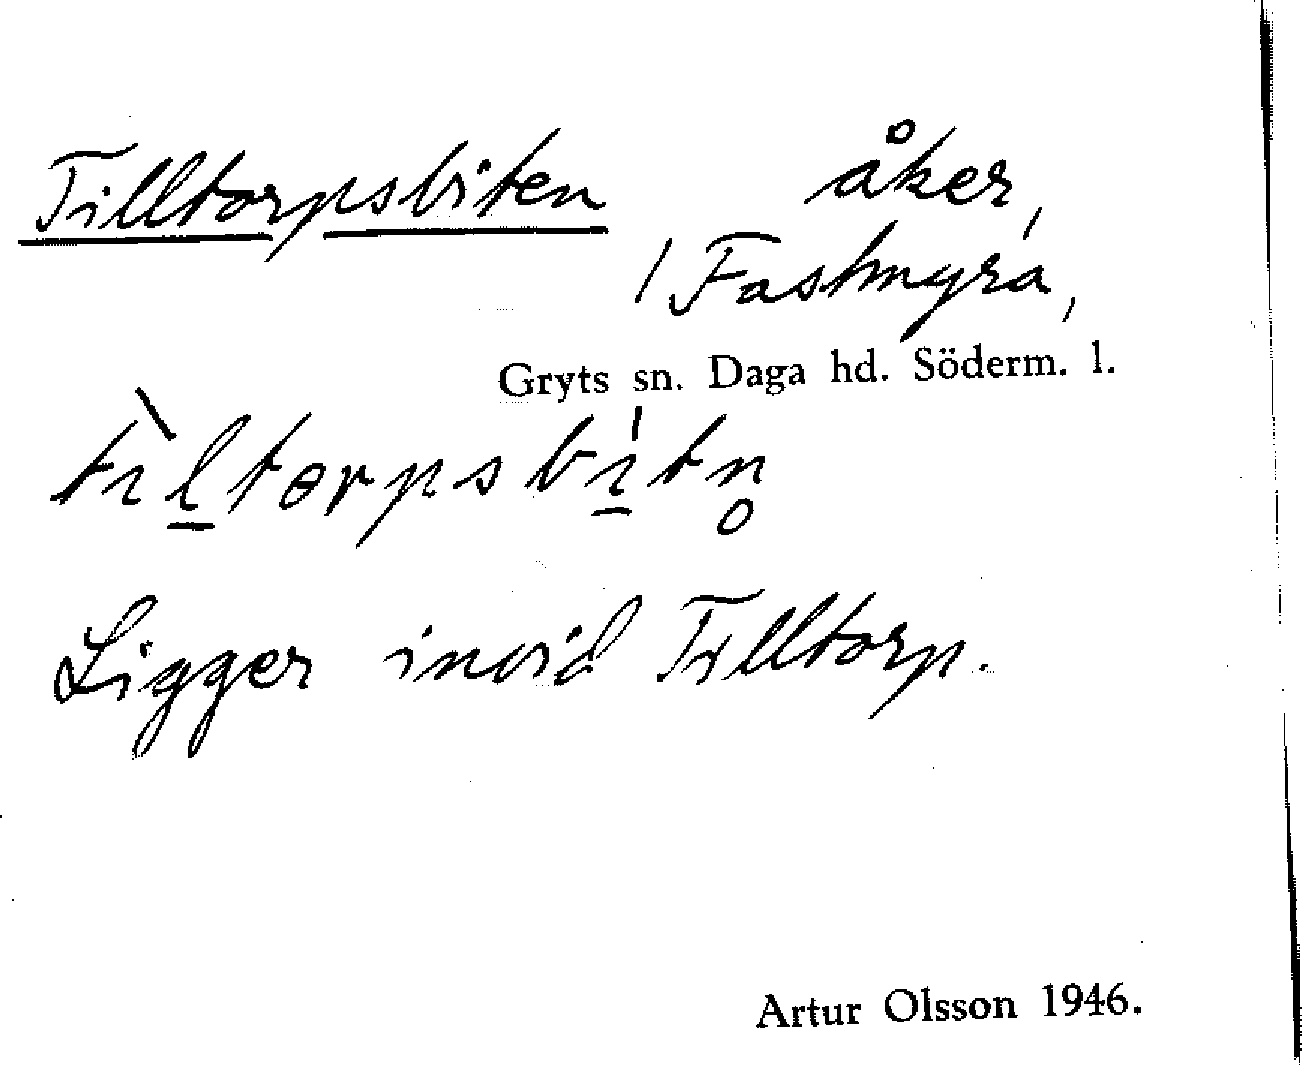 Tilltorpsbiten åker,
/ Fastmyra,
Gryts sn. Daga hd. Söderm. l.
tìl̲torpsbi̲̍tn̥
Ligger invid Tilltorp.
Artur Olsson 1946.